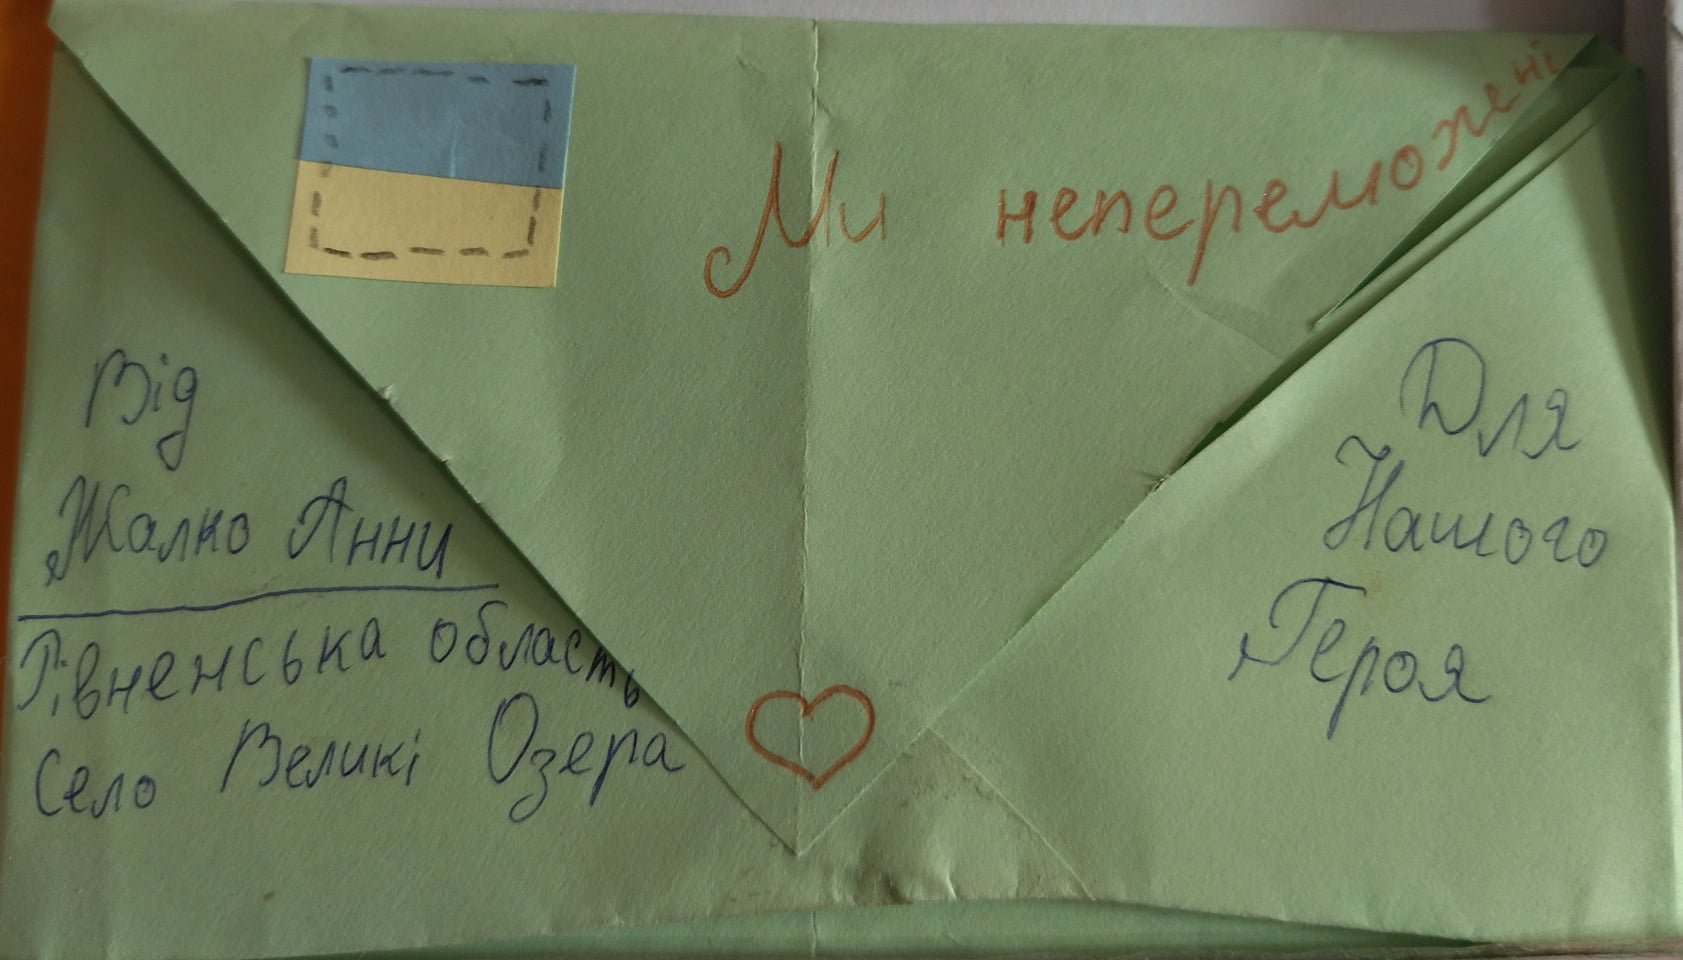 Ми непереможені
Від
Жалко Анни
Рівненська область
Село Великі Озера
Для
Нашого
Героя